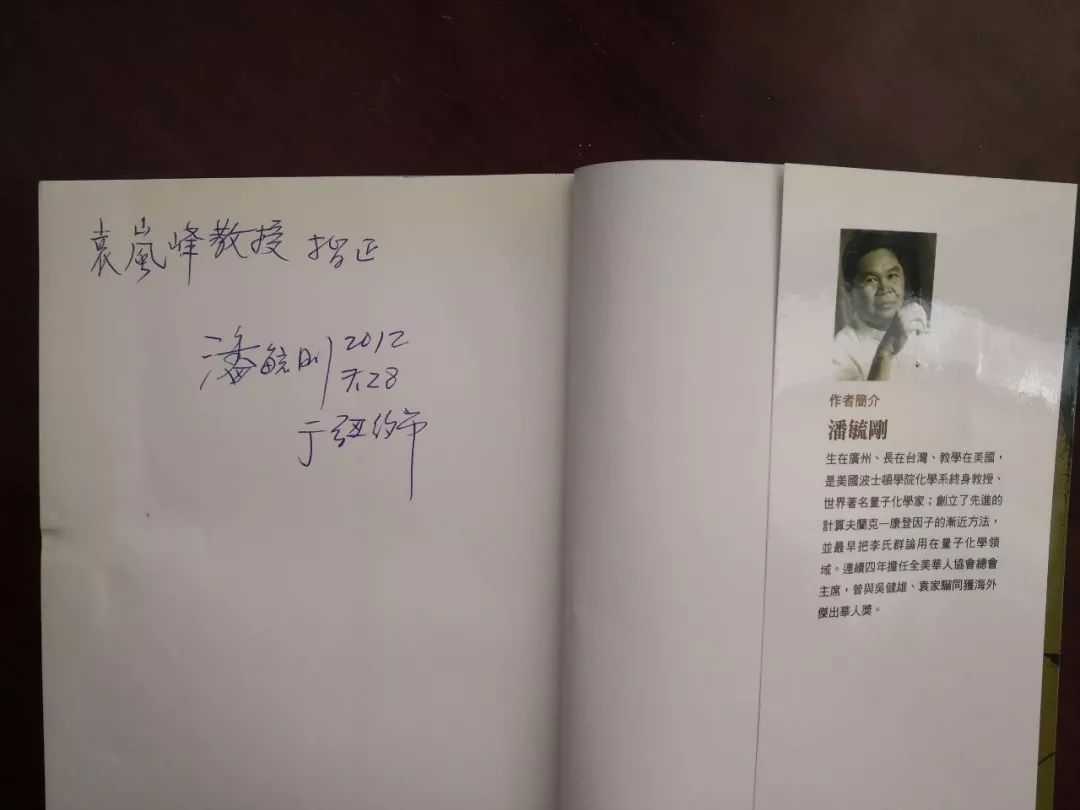 袁嵐峰教授 指正
潘毓刚 2012
7.28
于紐约市
作者簡介
潘毓剛
生在廣州、長在台灣、教學在美國，
是美國波士頓學院化學系終身教授、
世界著名量子化學家；創立了先進的
計算夫蘭克—康登因子的漸近方法，
並最早把李氏群論用在量子化學領
域。連續四年擔任全美華人協會總會
主席，曾與吳健雄、袁家騮同獲海外
傑出華人獎。